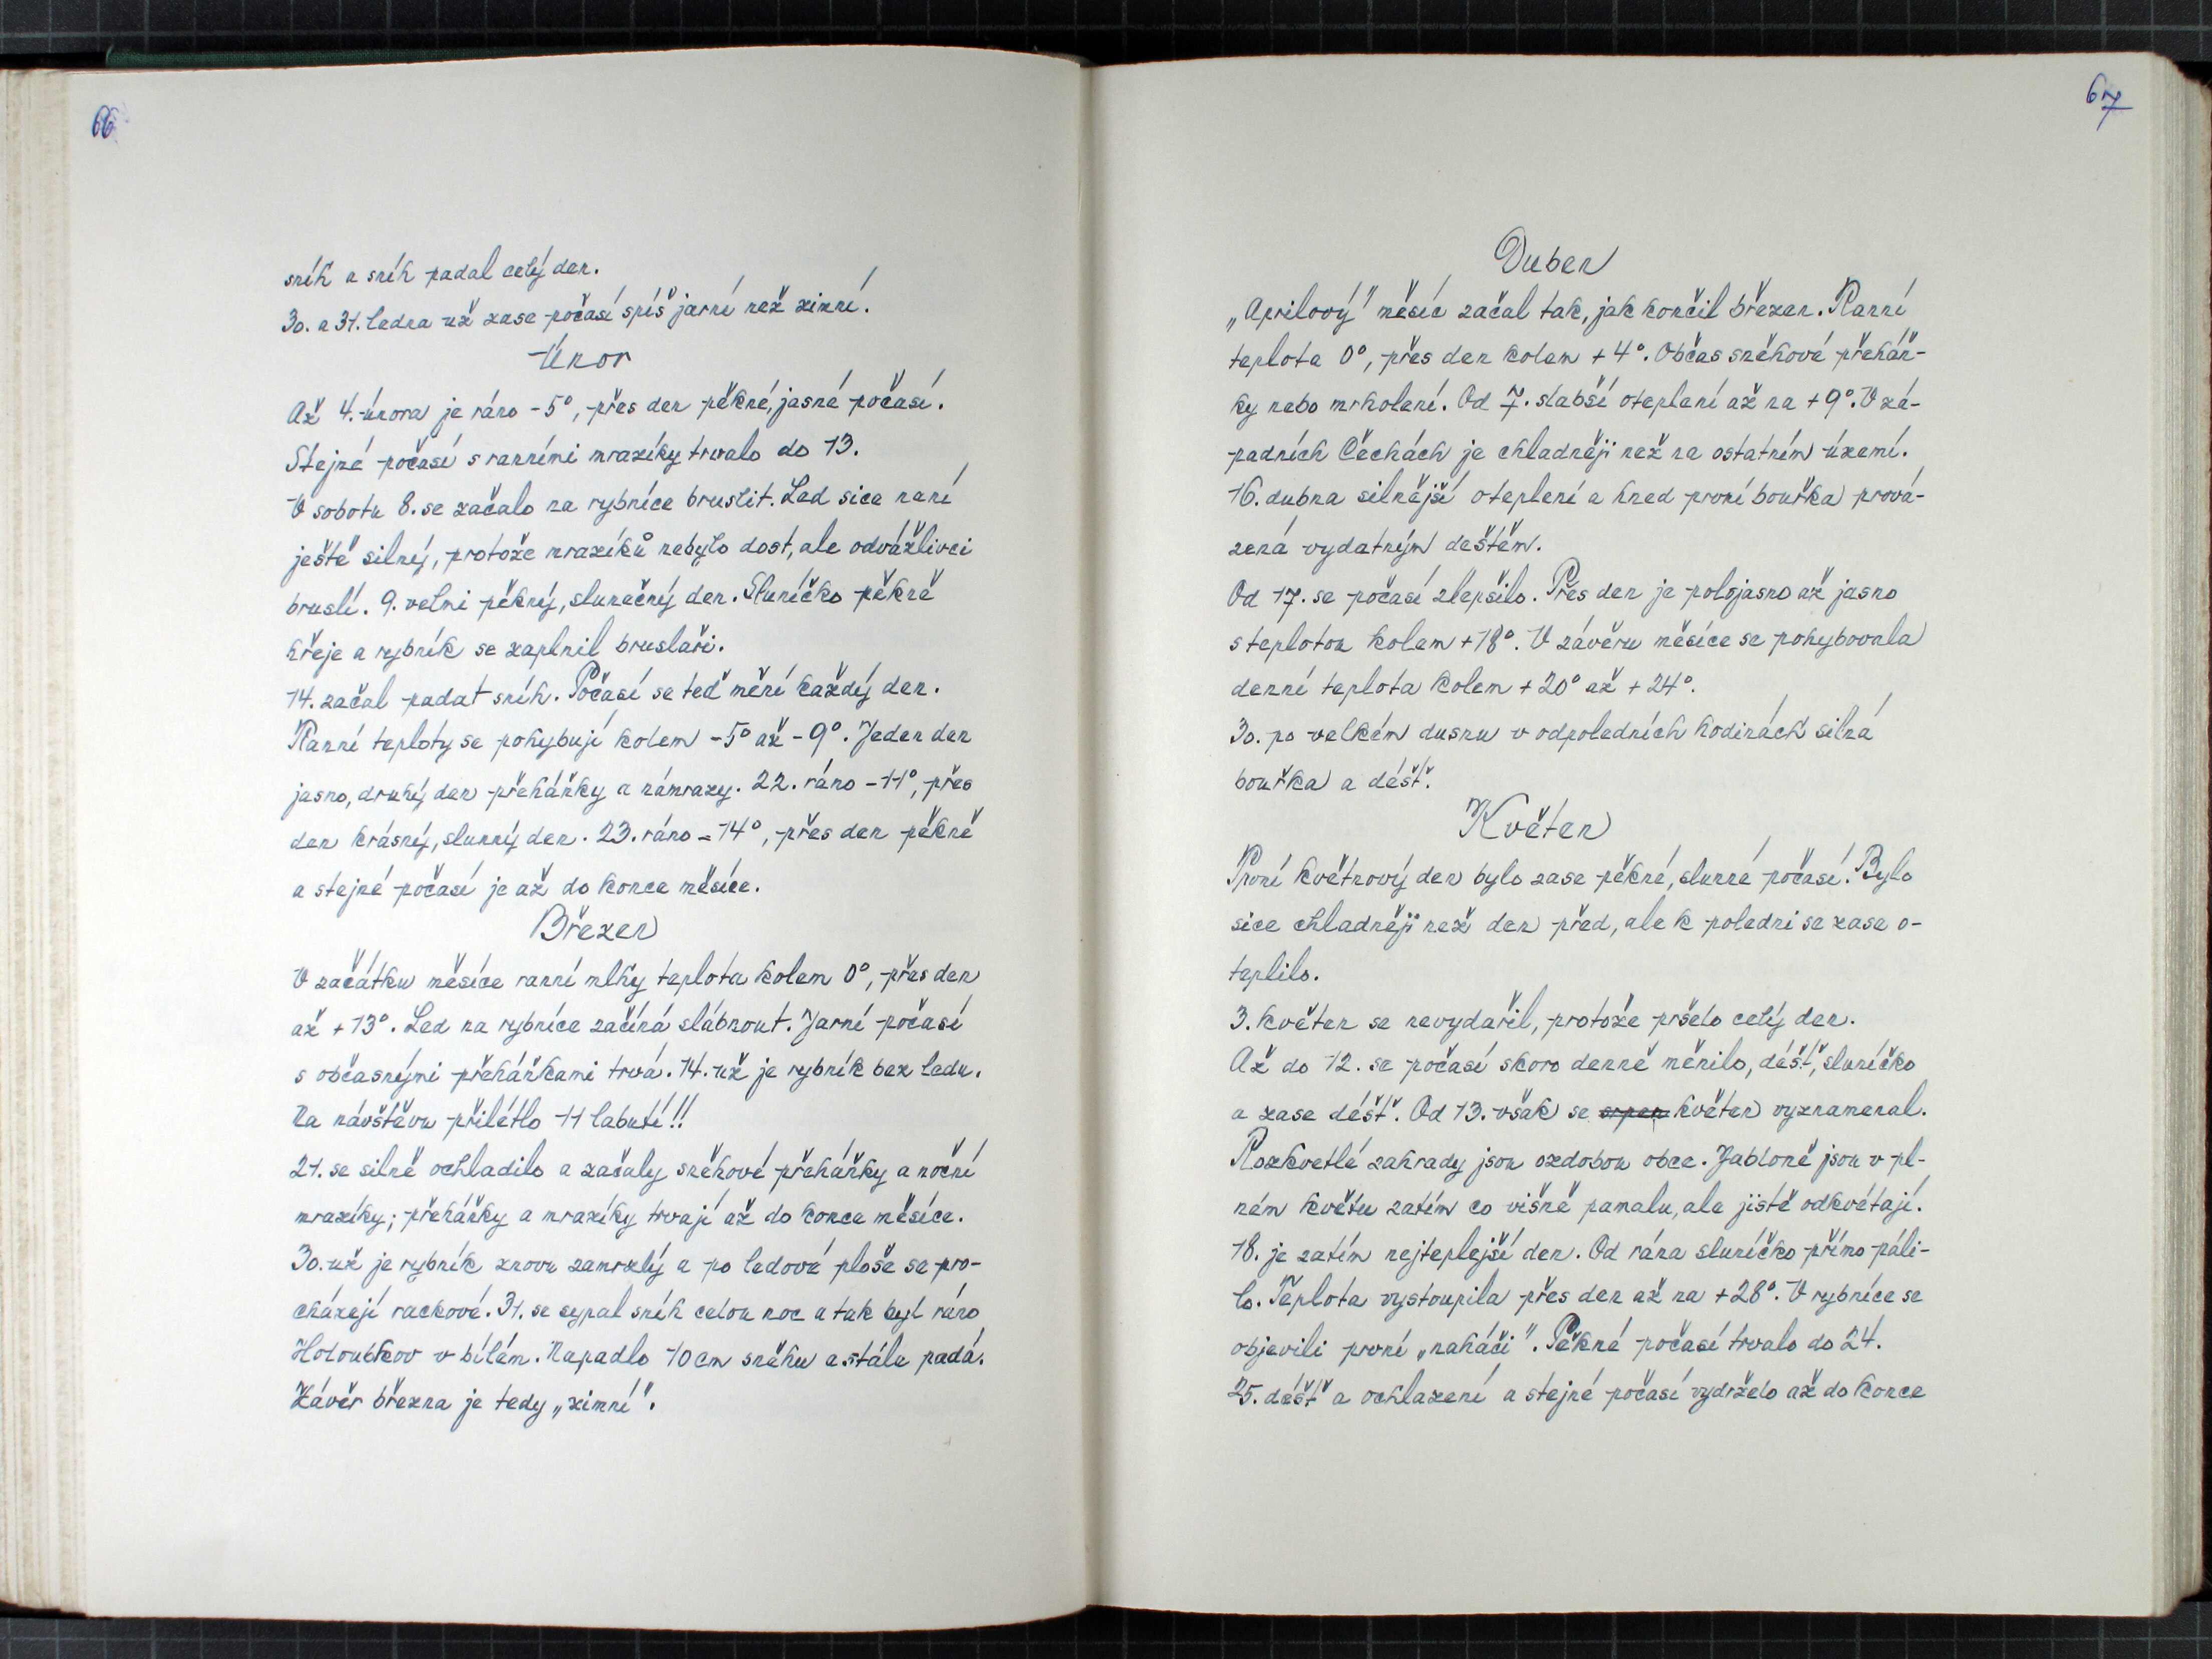 66
sníh a sníh padal celý den.
30. a 31. ledna už zase počasí spíš jarní než zimní.
Únor
Až 4. února je ráno -5°, přes den pěkné, jasné počasí.
Stejné počasí s ranními mrazíky trvalo do 13.
V sobotu 8. se začalo na rybníce bruslit. Led sice není
ještě silný, protože mrazíků nebylo dost, ale odvážlivci
bruslí. 9. velmi pěkný, slunečný den. Sluníčko pěkně
hřeje a rybník se zaplnil bruslaři.
14. začal padat sníh. Počasí se teď mění každý den.
Ranní teploty se pohybují kolem -5° až -9°. Jeden den
jasno, druhý den přeháňky a námrazy. 22. ráno -11°, přes
den krásný, slunný den. 23. ráno -14°, přes den pěkně
a stejné počasí je až do konce měsíce.
Březen
V začátku měsíce ranní mlhy teplota kolem 0°, přes den
až +13°. Led na rybníce začíná slábnout. Jarní počasí
s občasnými přeháňkami trvá. 14. už je rybník bez ledu.
Na návštěvu přilétlo 11 labutí!!
21. se silně ochladilo a začaly sněhové přeháňky a noční
mrazíky; přeháňky a mrazíky trvají až do konce měsíce.
30. už je rybník znovu zamrzlý a po ledové ploše se pro-
cházejí rackové. 31. se sypal sníh celou noc a tak byl ráno
Holoubkov v bílém. Napadlo 10 cm sněhu a stále padá.
Závěr března je tedy „zimní".
67
Duben
„Aprilový" měsíc začal tak, jak končil březen. Ranní
teplota 0°, přes den kolem +4°. Občas sněhové přeháň-
ky nebo mrholení. Od 7. slabší oteplení až na +9°. V zá-
padních Čechách je chladněji než na ostatním území.
16. dubna silnější oteplení a hned první bouřka prová-
zená vydatným deštěm.
Od 17. se počasí zlepšilo. Přes den je polojasno až jasno
s teplotou kolem +18°. V závěru měsíce se pohybovala
denní teplota kolem +20° až +24°.
30. po velkém dusnu v odpoledních hodinách silná
bouřka a déšť.
Květen
První květnový den bylo zase pěkné, slunné počasí. Bylo
sice chladněji než den před, ale k poledni se zase o-
teplilo.
3. květen se nevydařil, protože pršelo celý den.
Až do 12. se počasí skoro denně měnilo, déšť, sluníčko
a zase déšť. Od 13. však se srpen květen vyznamenal.
Rozkvetlé zahrady jsou ozdobou obce. Jabloně jsou v pl-
ném květu zatím co višně pamalu, ale jistě odkvétají.
18. je zatím nejteplejší den. Od rána sluníčko přímo páli-
lo. Teplota vystoupila přes den až na +28°. V rybníce se
objevili první „naháči". Pěkné počasí trvalo do 24.
25. déšť a ochlazení a stejné počasí vydrželo až do konce